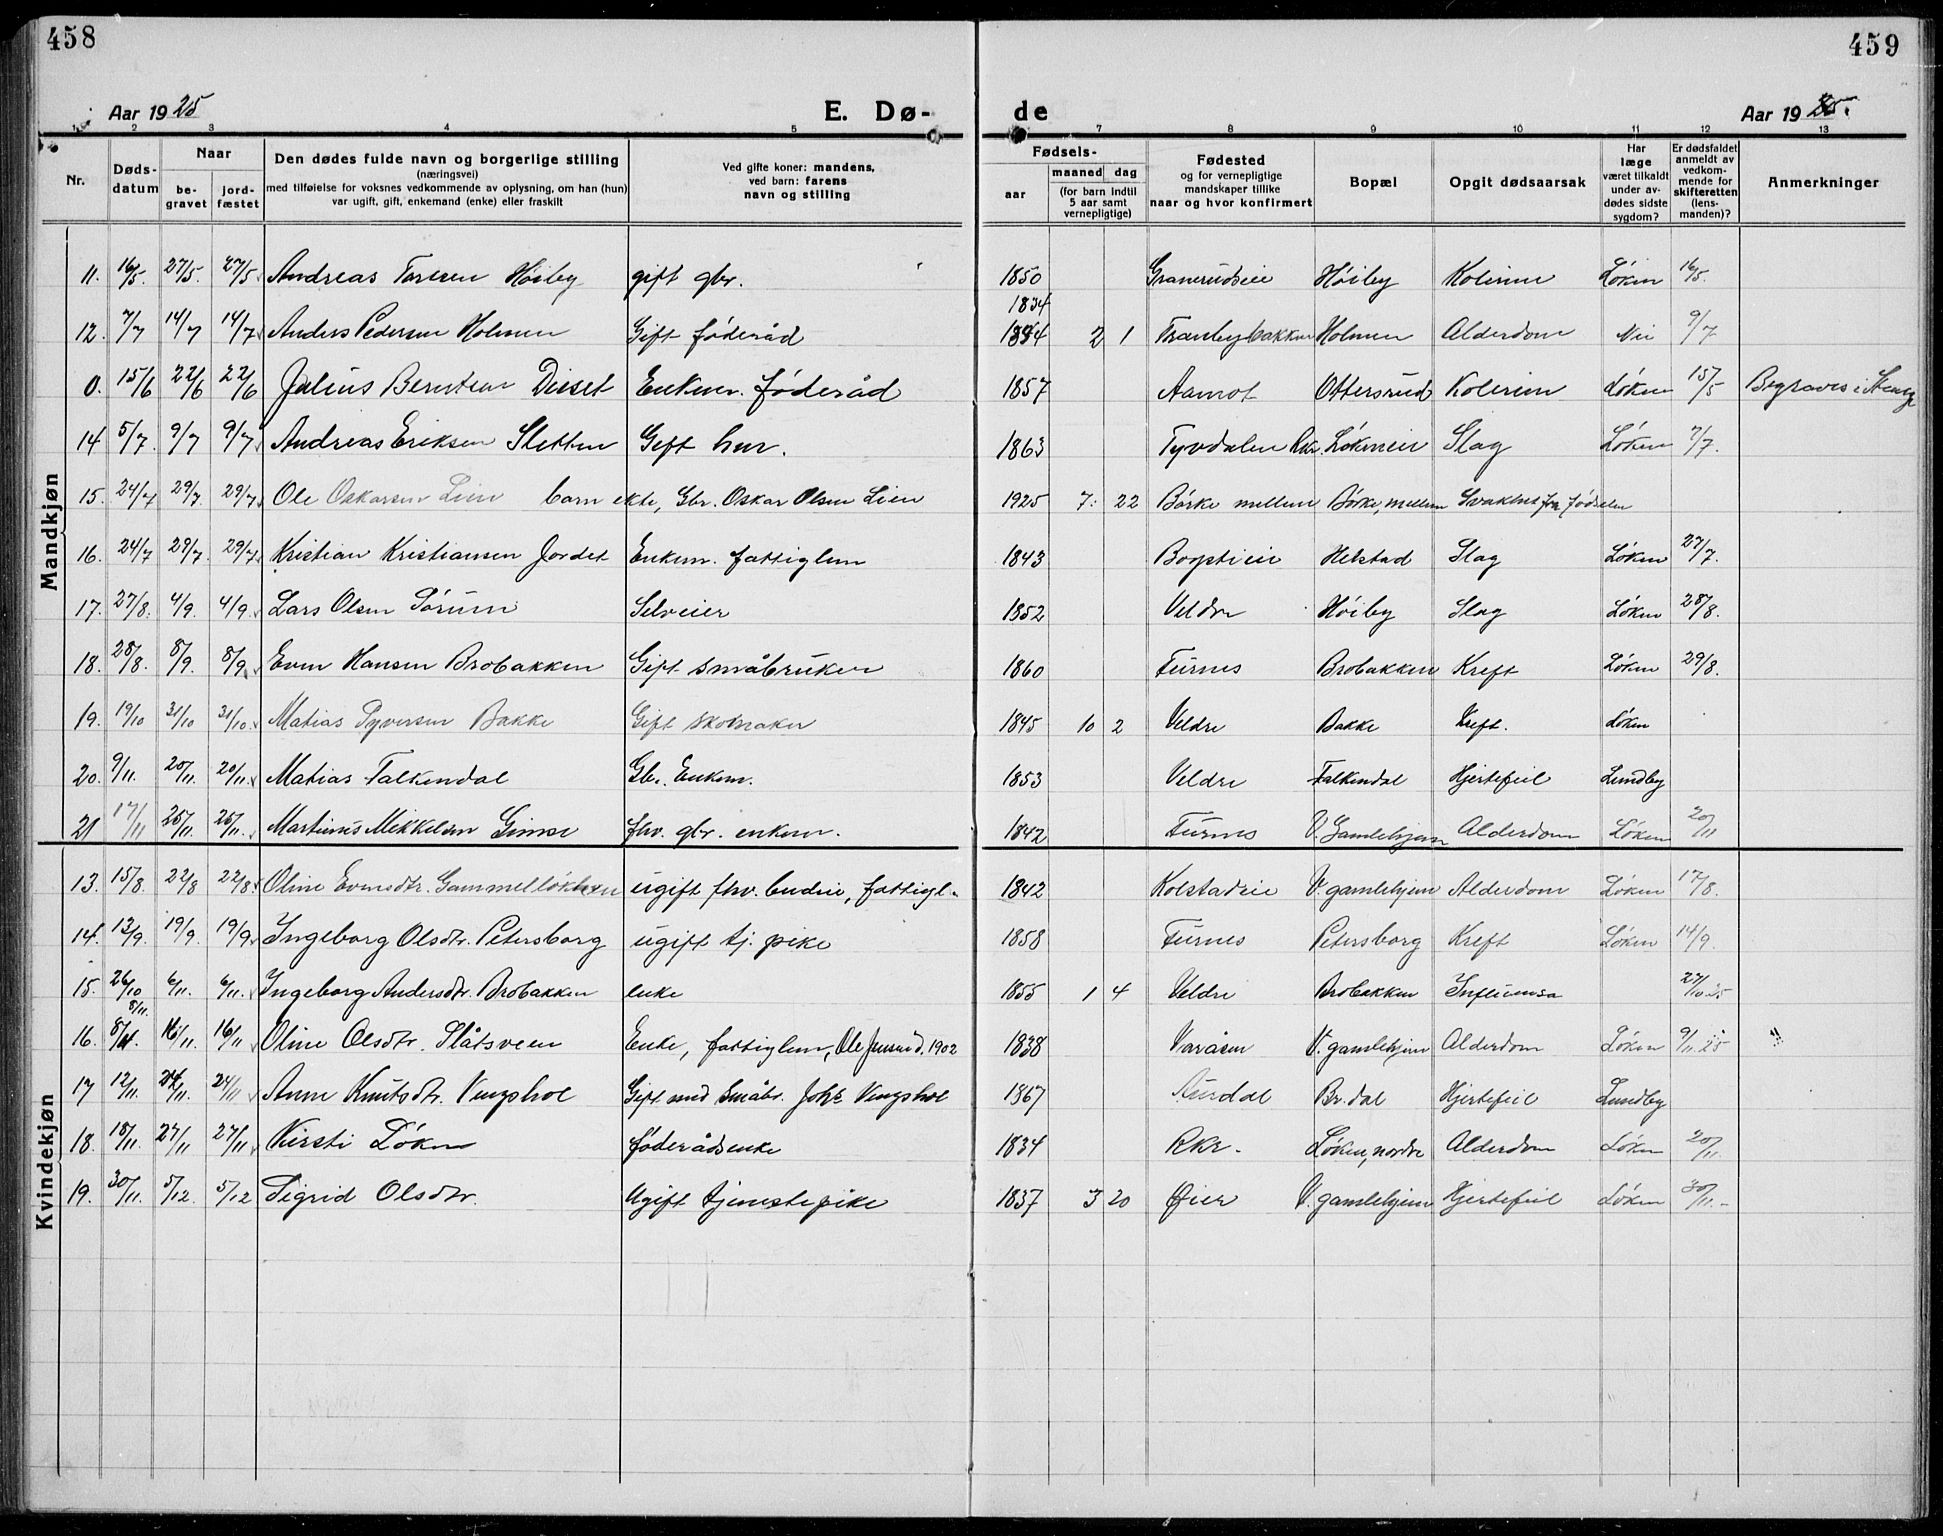 458
459
Aar 1925
E. Dø-
de
Aar 1925.
1 2 3 4 5 7 8 9 10 11 12 13
Nr.
Døds-datum
Naar
be-gravet
jord-fæstet
Den dødes fulde navn og borgerlige stilling
(næringsvei)
med tilføielse for voksnes vedkommende av oplysning, om han (hun)
var ugift, gift, enkemand (enke) eller fraskilt
Ved gifte koner: mandens,
ved barn: farens
navn og stilling
Fødsels-
aar
maaned dag
(for barn indtil
5 aar samt
vernepligtige)
Fødested
og for vernepligtige
mandskaper tillike
naar og hvor konfirmert
Bopæl
Opgit dødsaarsak
Har
læge
været tilkaldt
under av-
dødes sidste
sygdom?
Er dødsfaldet
anmeldt av
vedkom-
mende for
skifteretten
(lens-
manden)?
Anmerkninger
Mandkjøn
11. 16/5. 27/5. 27/5. Andreas Høiby gift gbr. 1850 Granerudseie Høiby Løken 16/5.
1834
12. 7/7 14/7 14/7 Anders Pedersen Holmen Gift føderåd 2 1 Tranbybakken Holmen Alderdom Nei 9/7
0. 15/6 22/6 22/6 Julius Berntsen Diset Enkem. føderåd 1857 Aamot Ottersrud Løken 15/5 Begraves i Stange
14 5/7. 9/7 9/7 Andreas Eriksen Sletten Gift 1863 Tyvdalen Rkr. Løkeneie Slag Løken 7/7.
15. 24/7 29/7. 29/7. Ole Oskarsen Lien barn ekte, Gbr. Oskar Olsen Lien 1925 7. 22 Børke mellem Børke, mellem Svakhet fra fødselen
16. 24/7 29/7. 29/7. Kristian Kristiansen Jordet Enkem. fattiglem 1843 Helstad Slag Løken 27/7.
17. 27/8. 4/9. 4/9. Lars Olsen Sørum Selveier 1852 Veldre Høiby Slag Løken 28/8.
18. 28/8. 8/9. 8/9. Even Hansen Brobakken Gift småbruker 1860 Furnes Brobakken Kreft Løken 29/8.
19. 19/10 31/10 31/10 Matias Syversen Bakke Gift skomaker 1845 10 2 Veldre Bakke Kreft. Løken
20. 9/11. 20/11. 20/11. Matias Falkendal Gbr. Enkem. 1853 Veldre Falkendal Hjertefeil Lundby
21 17/11 25/11. 25/11. Martinus Mikkelsen Gimse fhv. gbr. enkem. 1842 Furnes V. Gamlehjem Alderdom Løken 20/11
Kvindekjøn
13. 15/8. 22/8 22/8. Oline Evensdtr. Gammelløkken ugift fhv. budeie, fattigl. 1842 Kolstadeie V. gamlehjem Alderdom Løken 17/8.
14. 13/9. 19/9. 19/9. Ingeborg Olsdtr. Petersborg ugift tj. pike 1858 Furnes Petersborg Kreft Løken 14/9.
15. 26/10 6/11. 6/11. Ingeborg Andersdtr. Brobakken enke 1855 1 4 Veldre Brobakken Influensa 27/10 25
8/11.
16. 16/11. 16/11 Oline Olsdtr. Slåtsveen Enke, fattiglem, Ole Jensen d. 1902 1838 Varåsen V. gamlehjem Alderdom Løken 9/11. 25
17 12/11. 24/11. 24/11 Anne Knutsdtr. Vengshol Gift med småbr. Johs Vengshol 1867 Aurdal Br.dal Hjertefeil Lundby
18. 18/11. 27/11 27/11 Kirsti Løken føderådsenke 1834 Rkr. Løken, nordre Alderdom Løken 20/11.
19. 30/11. 5/12. 5/12 Sigrid Olsdtr. Ugift tjenestepike 1837 3 20 Øier V. gamlehjem Hjertefeil Løken 30/11.